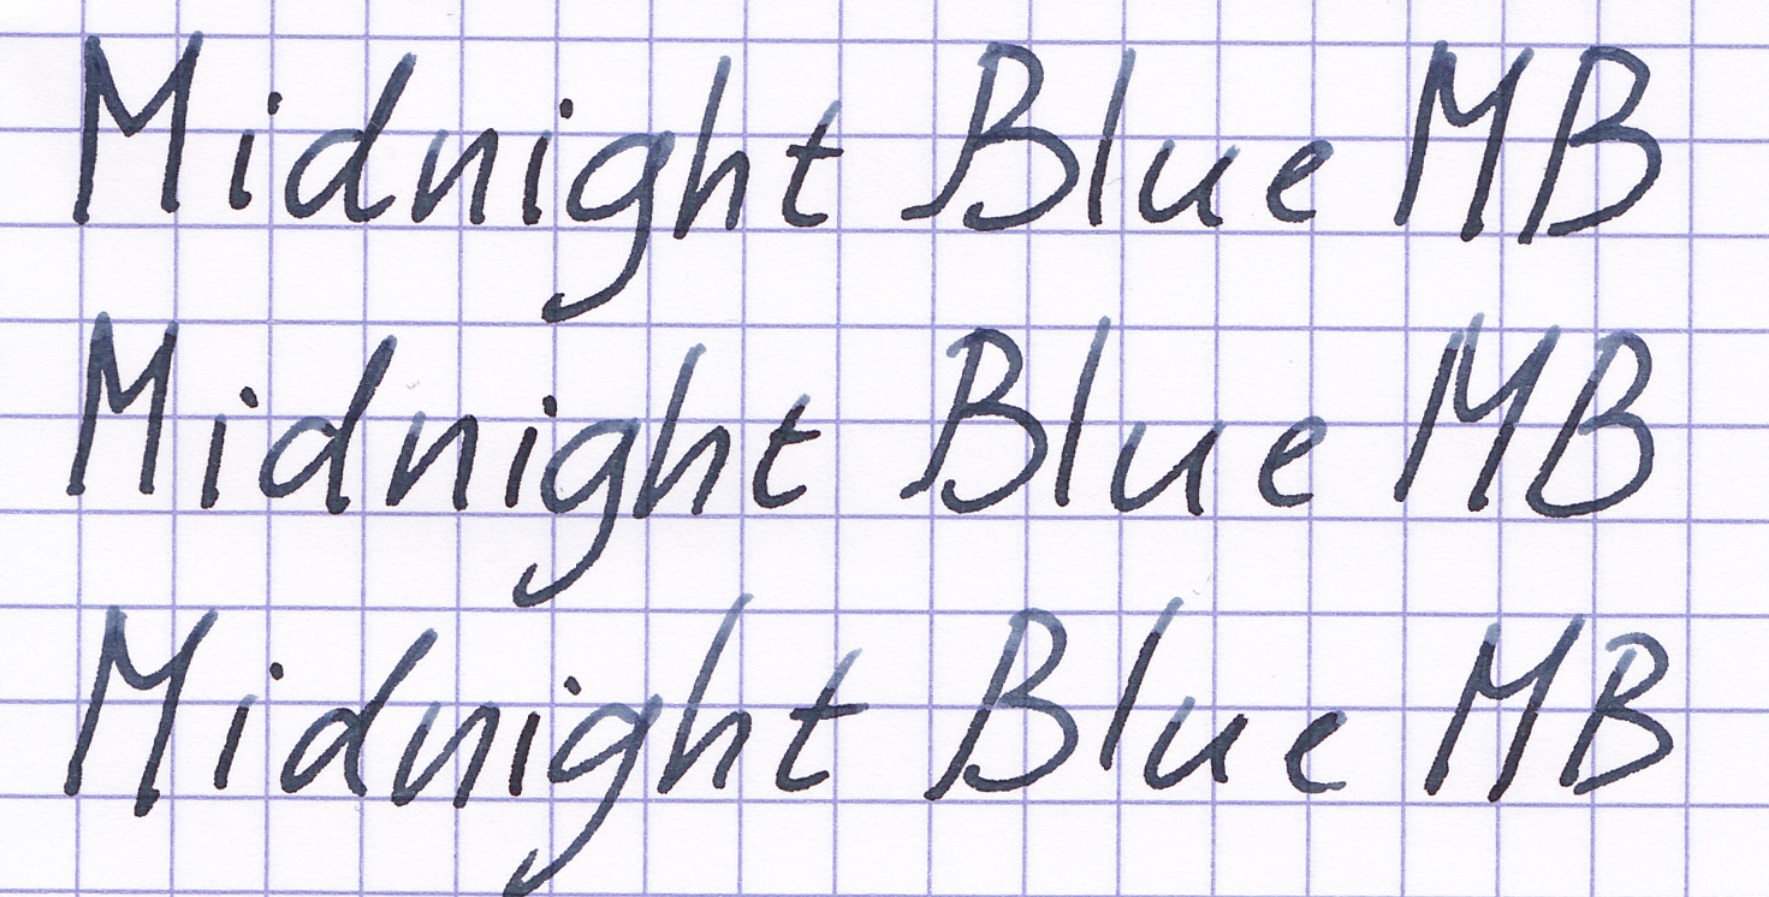 Midnight Blue MB
Midnight Blue MB
Midnight Blue MB